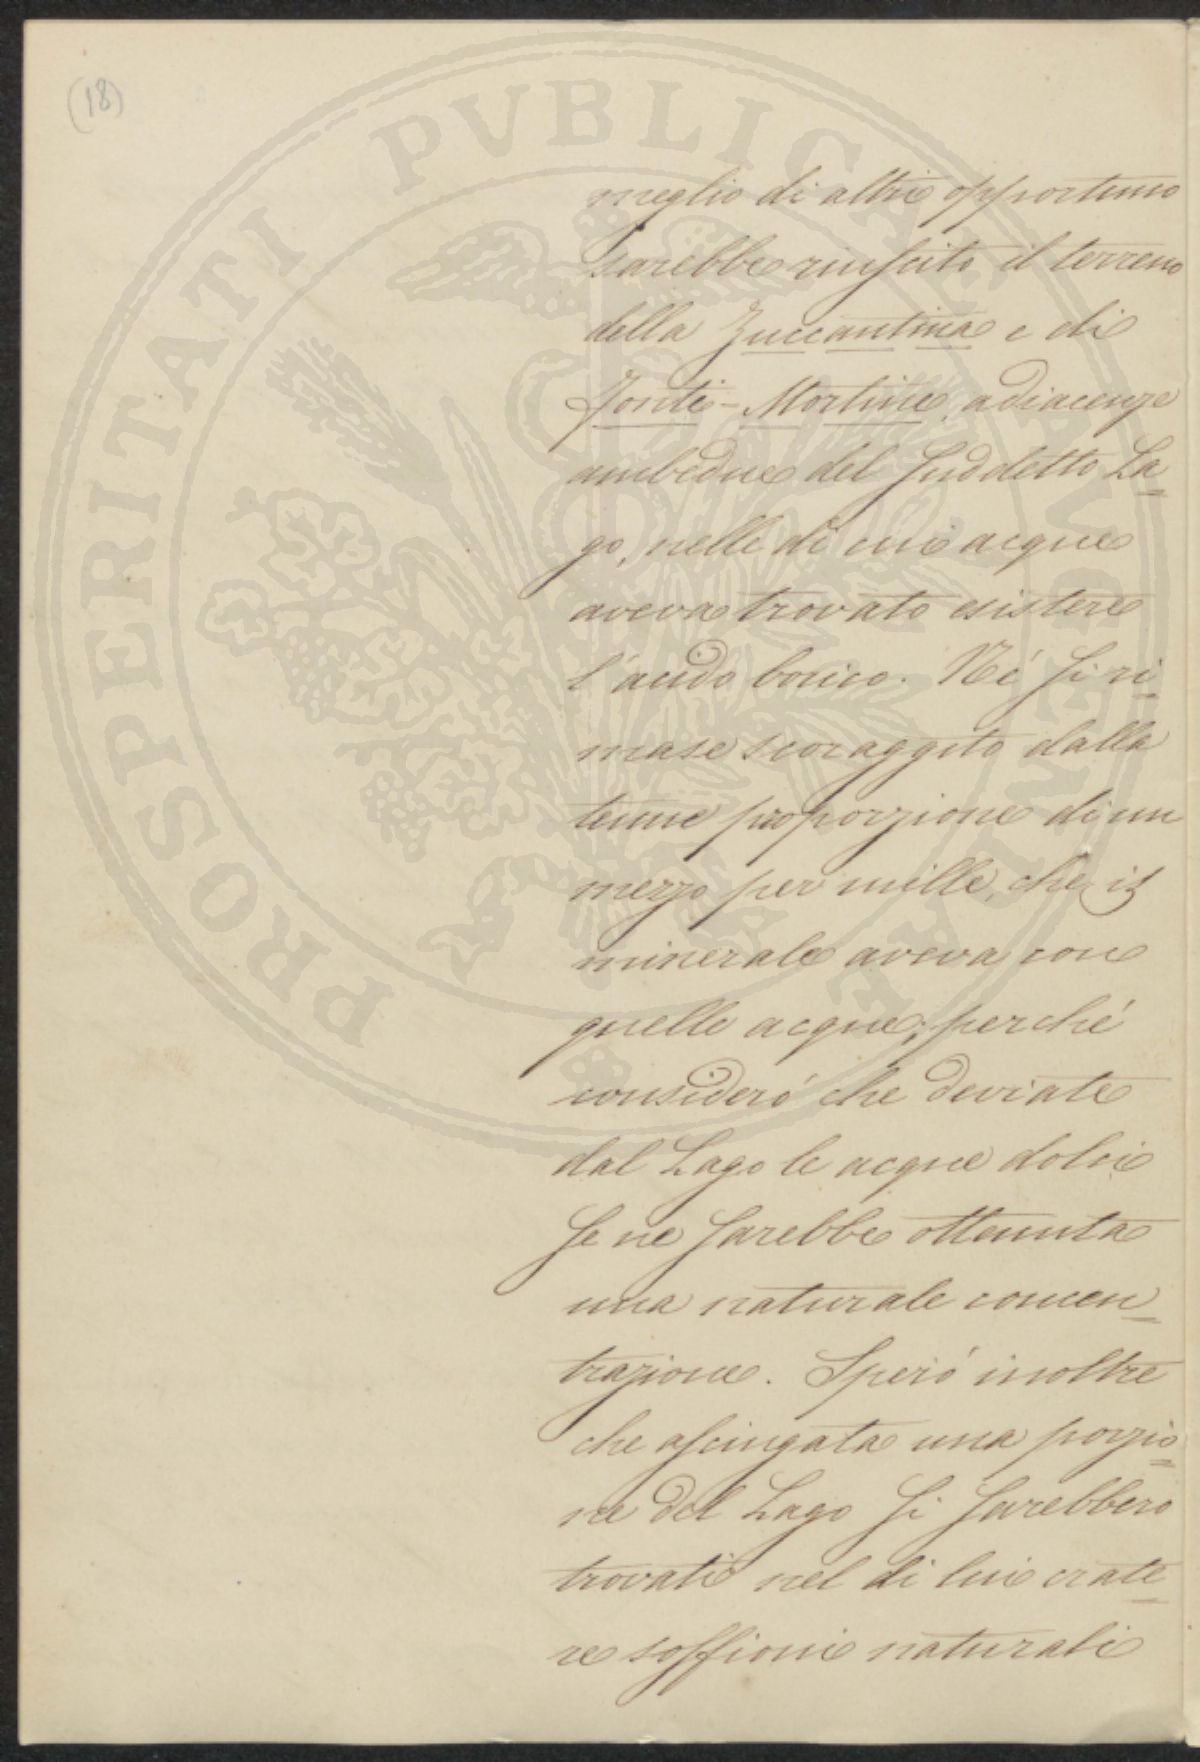 (18)
PROSPERITATI PVBLICAE AVGENDAE
meglio di altri opportuno
sarebbe riuscito il terreno
della Zuccantina e di
Fonti-Mortine, adiacenze
ambedue del suddetto La=
go, nelle di cui acque
aveva trovato esistere
l'acido borico. Né si ri=
mase scoraggito dalla
tenue proporzione di un
mezzo per mille, che il
minerale aveva con
quelle acque; perché
consideró che deviate
dal Lago le acque dolci
se ne sarebbe ottenuta
una naturale concen=
trazione. Speró inoltre
che asciugata una porzio=
ne del Lago si sarebbero
trovati nel di lui crate=
re soffioni naturali